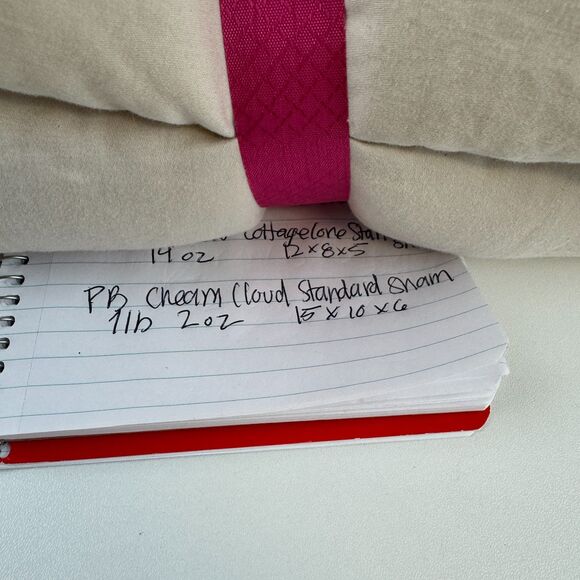 Cottagecore Stan
14 oz 12x8x5
PB Cream Cloud Standard Sham
1lb 2oz 15 x 10 x 6